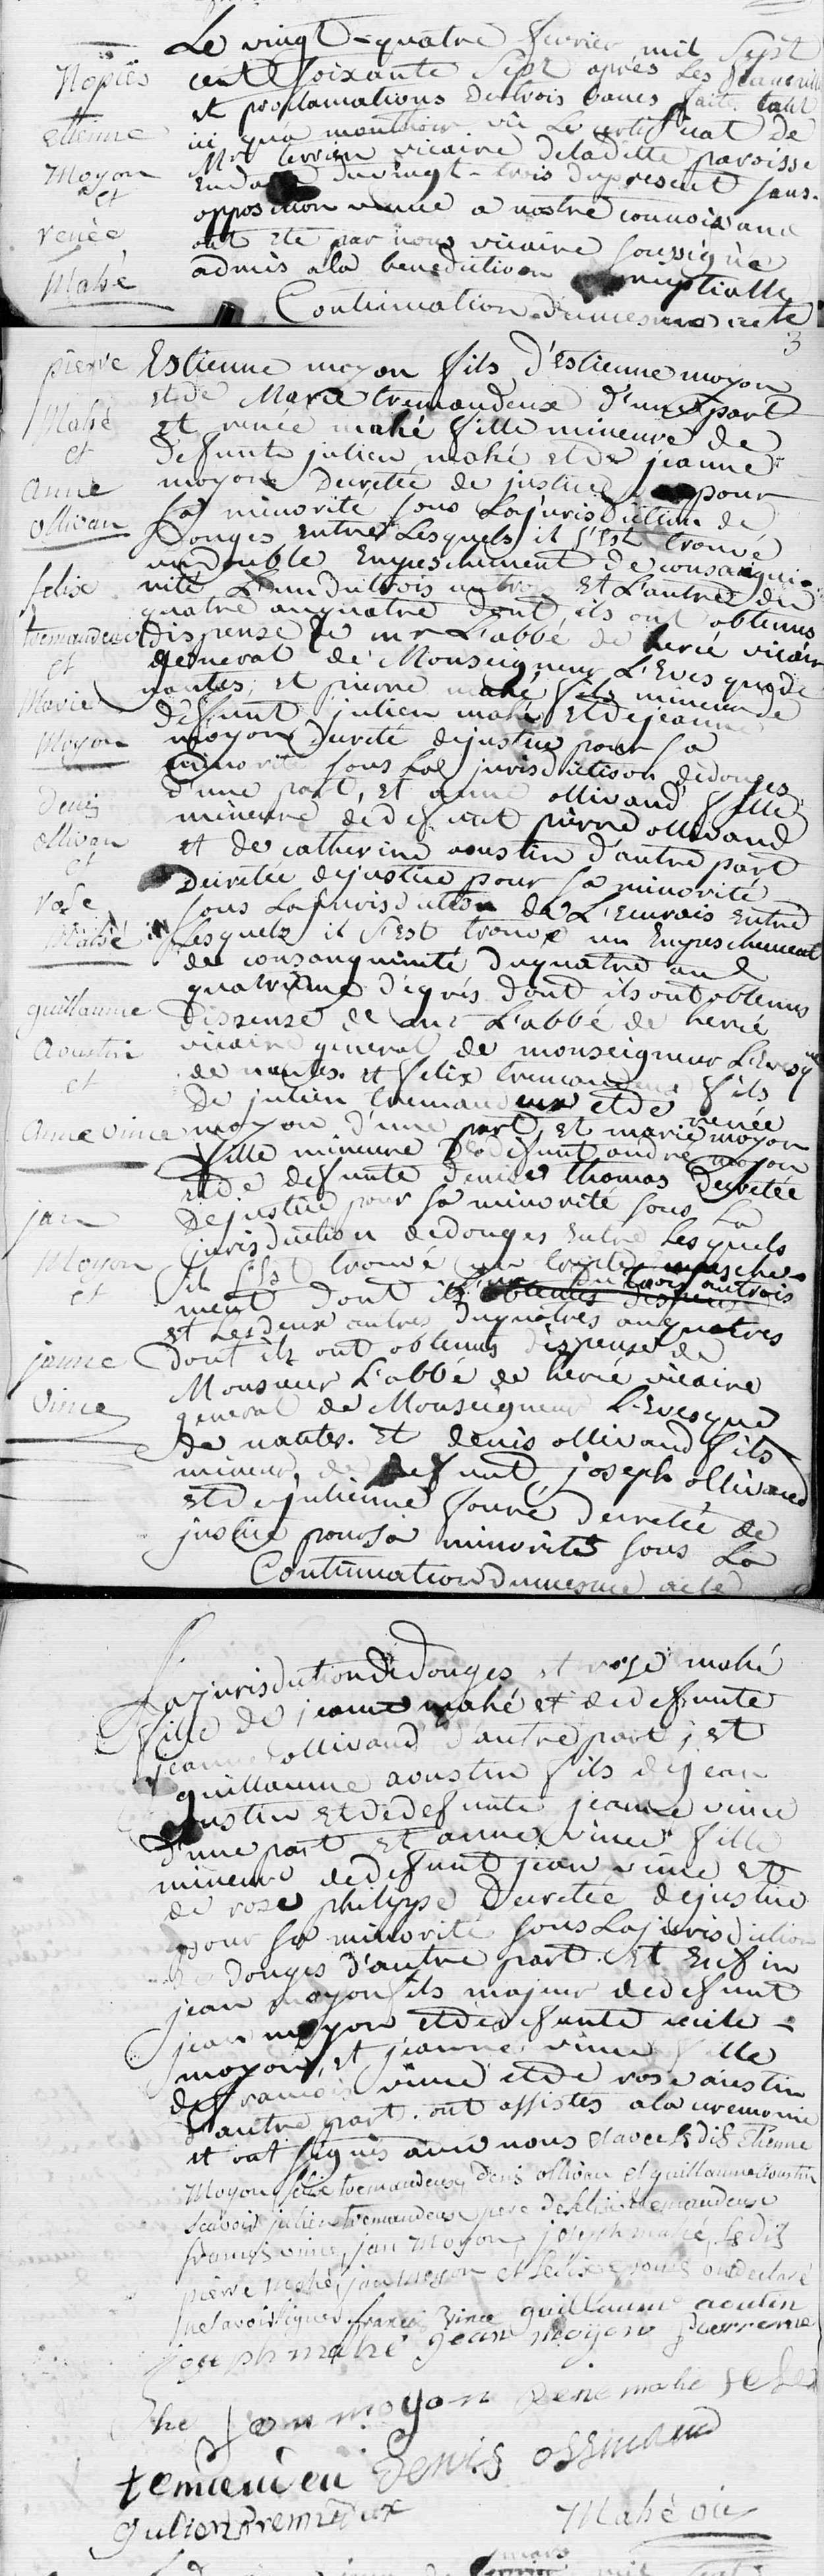 Le vingt-quatre fevrier mil sept
cent soixante sept apres les
et proclamations de trois bans faite tant
ici qu'a monthoir vu le certificat de
Mr terrien vicaire de la ditte paroisse
en date du vingt-trois du present sans
opposition venue a nostre connoissance
ont ete par nous vicaire soussigné
admis a la benediction nuptialle
Continuation du mesme acte
Nopces
Etienne
Moyon
et
renée
Mahé
3
pierre
Mahé
et
Anne
Ollivau
felix
tremaudeux
et
Marie
Moyon
Denis
ollivau
et
rose
Mahé
guillaume
Aoustin
et
Anne vince
jan
Moyon
et
janne
Vince
Estienne moyon fils d'Estienne moyon
et de Marie tremaudeux d'une part
et renée mahé fille mineure de
defunt julien mahé et de jeanne
moyon decretée de justice pour
sa minorité sous la jurisdiction de
Donges entre lesquels il s'est trouvé
un double Empeschement de consangui-
nité l'un du trois au trois et l'autre du
quatre au quatre dont ils ont obtenus
dispense de mr L'abbé de hercé vicaire
general de Monseigneur L'Evesque de
nantes, et pierre mahé fils mineur de
defunt julien mahé et de jeanne
moyon decreté de justice pour sa
minorité sous la jurisdiction de donges
d'une part, et anne ollivaud fille
mineure de defunt pierre ollivaud
et de catherine aoustin d'autre part
decretée de justice pour sa minorité
sous la jurisdiction de L'Eurais entre
lesquels il s'est trouvé un Empeschement
de consanguinité du quatre au
quatrieme degrés dont ils ont obtenus
dispense de mr L'abbé de hercé
vicaire general de monseigneur L'Evesque
de nantes. et felix tremaudeux fils
De julien tremaudeux et de renée
moyon d'une part, et marie moyon
fille mineure de defunt andré moyon
et de defunte denise thomas decretée
de justice pour sa minorité sous la
jurisdiction de donges entre lesquels
il s'est trouvé un triple empesche-
ment dont du trois au trois
et les deux autres du quatres au quatres
dont ils ont obtenus dispense de
Monsieur L'abbé de hercé vicaire
general de Monseigneur L'Evesque
de nantes. Et denis ollivaud fils
mineur de defunt joseph ollivaud
et de julienne fouré decretée de
justice pour sa minorité sous la
Continuation du mesme acte
La jurisdiction de Donges et rose mahé
fille de jeanne mahé et de defunte
jeanne ollivaud d'autre part, et
guillaume aoustin fils de jean
aoustin et de defunte jeanne vince
d'une part et anne vince fille
mineure de defunt jean vince et
de rose philippe decretée de justice
pour sa minorité sous la jurisdiction
de donges d'autre part. Et Enfin
jean moyon fils majeur de defunt
jean moyon et de defunte cecile
moyon, et jeanne vince fille
de francois vince et de rose austin
d'autre part. ont assistés a la ceremonie
et ont signés avec nous et avec lesdits Etienne
Moyon felix tremaudeux, denis ollivau et guillaume aoustin
scavoir julien tremaudeux pere de felix tremaudeux
francois vince, jan Moyon, joseph mahé, lesdits
pierre mahé, jan moyon et ont declaré
ne scavoir signer. francois Vince guillaume aoutin
joseph mahé jean moyon pierre ma
he jan moyon rene mahé felix
temaudeu Denis ollivaud
Julien tremaudeux
Mahé vic